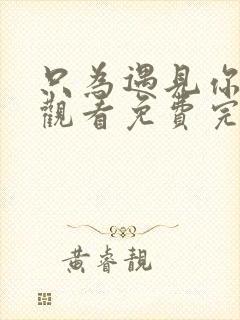 只為遇見你
觀看免費完
黃睿靚